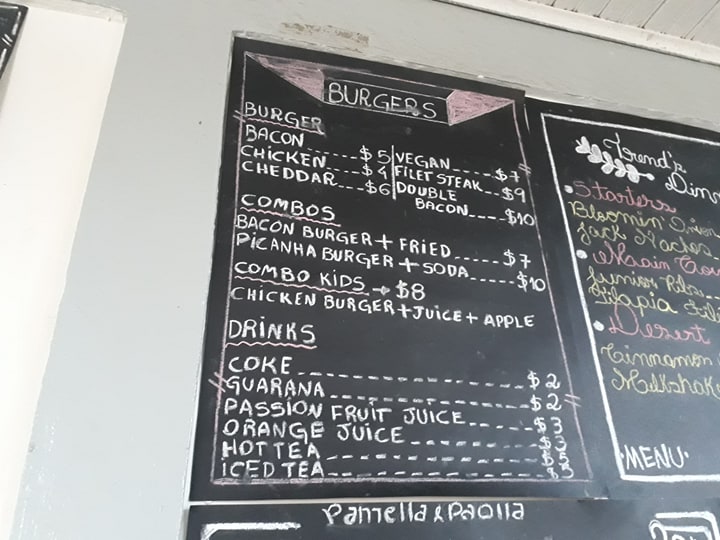 BURGERS
BURGER
BACON------$5
CHICKEN----$4
CHEDDAR---$6
VEGAN----$7
FILET STEAK--$9
DOUBLE
BACON----$10
COMBOS
BACON BURGER + FRIED-----$7
PICANHA BURGER + SODA-----$10
COMBO KIDS → $8
CHICKEN BURGER + JUICE + APPLE
DRINKS
COKE--------------$2
GUARANA------------$2
PASSION FRUIT JUICE----$3
ORANGE JUICE--------$3
HOT TEA
ICED TEA
Trend's
Dinn
Starters
Bloomin' Onion
Jack Nachos
Main Cou
Junior Ribs
Tilapia Fil
Desert
Cinnamon
Milkshake
MENU
Pamella & Paolla